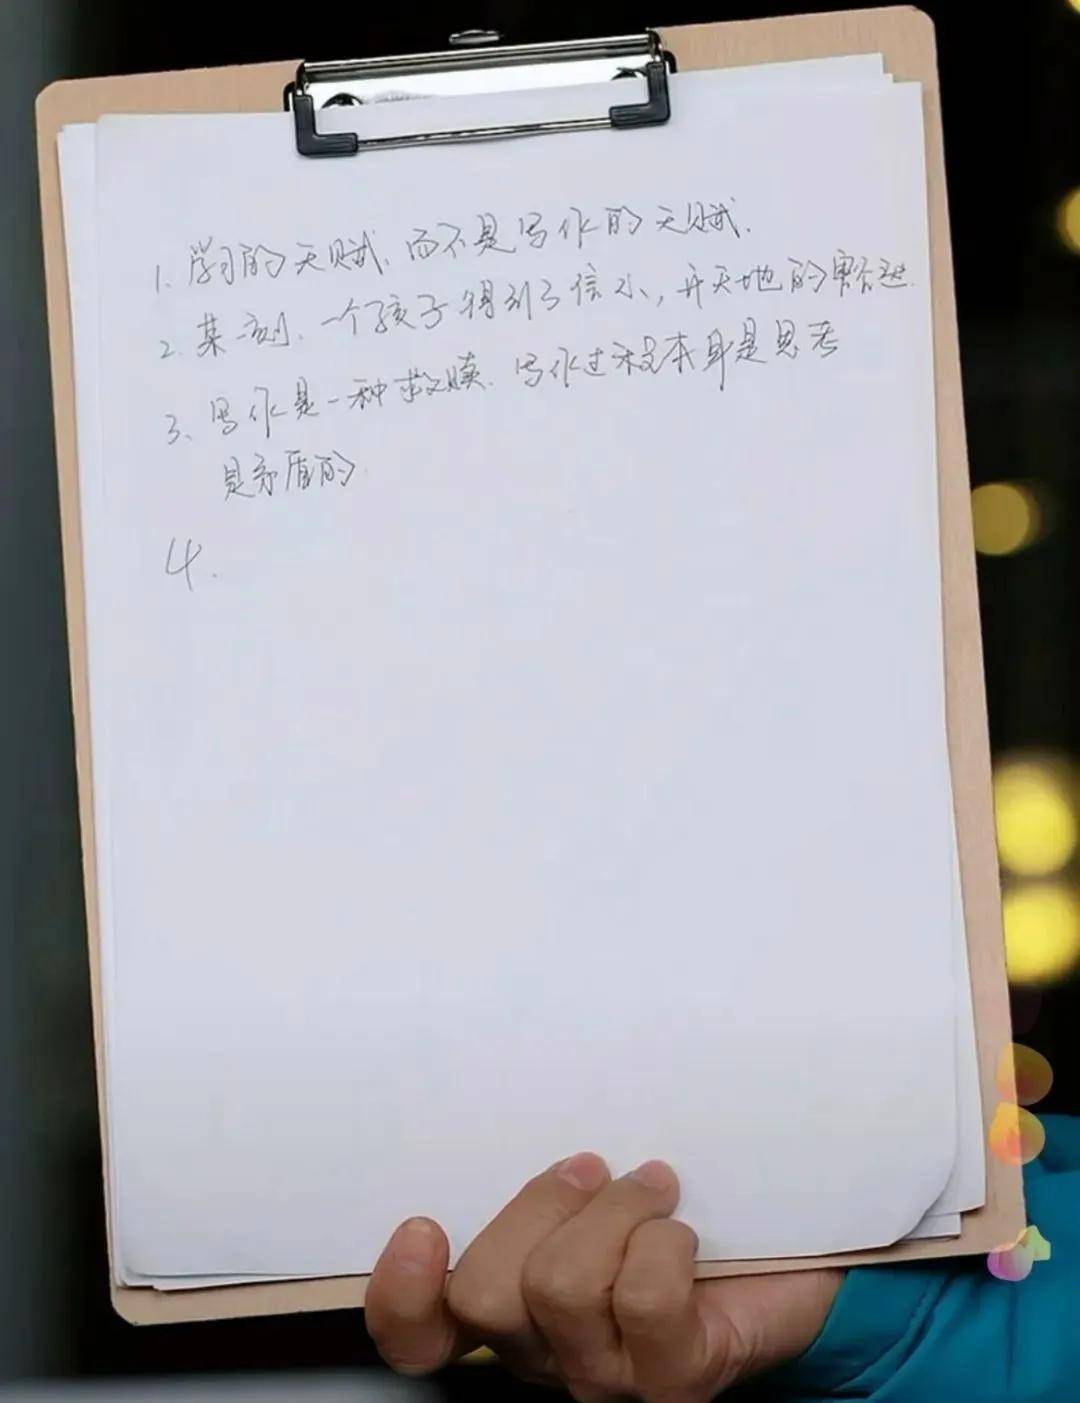 1. 学习的天赋、而不是写作的天赋.
2. 某一刻、一个孩子得到了信心,开天地的
3、写作是一种救赎. 写作过程本身是思考
是矛盾的.
4.